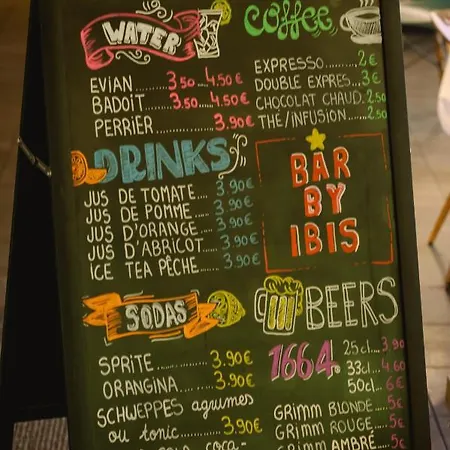 WATER
EVIAN 3.50 4.50€
BADOIT 3.50 4.50€
PERRIER 3.90€
coffee
EXPRESSO 2€
DOUBLE EXPRES 3€
CHOCOLAT CHAUD 2.50
THÉ/INFUSION 2.50
DRINKS
JUS DE TOMATE 3.90€
JUS DE POMME 3.90€
JUS D'ORANGE 3.90€
JUS D'ABRICOT 3.90€
ICE TEA PÊCHE 3.90€
BAR
BY
IBIS
SODAS
SPRITE 3.90€
ORANGINA 3.90€
SCHWEPPES agrumes
ou tonic 3.90€
BEERS
1664
25cl 3.90
33cl 4.60
50cl 6€
GRIMM BLONDE 5€
GRIMM ROUGE 5€
GRIMM AMBRÉ 5€